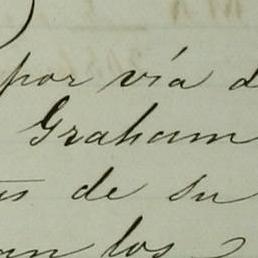 por vía d
Graham
de su
los